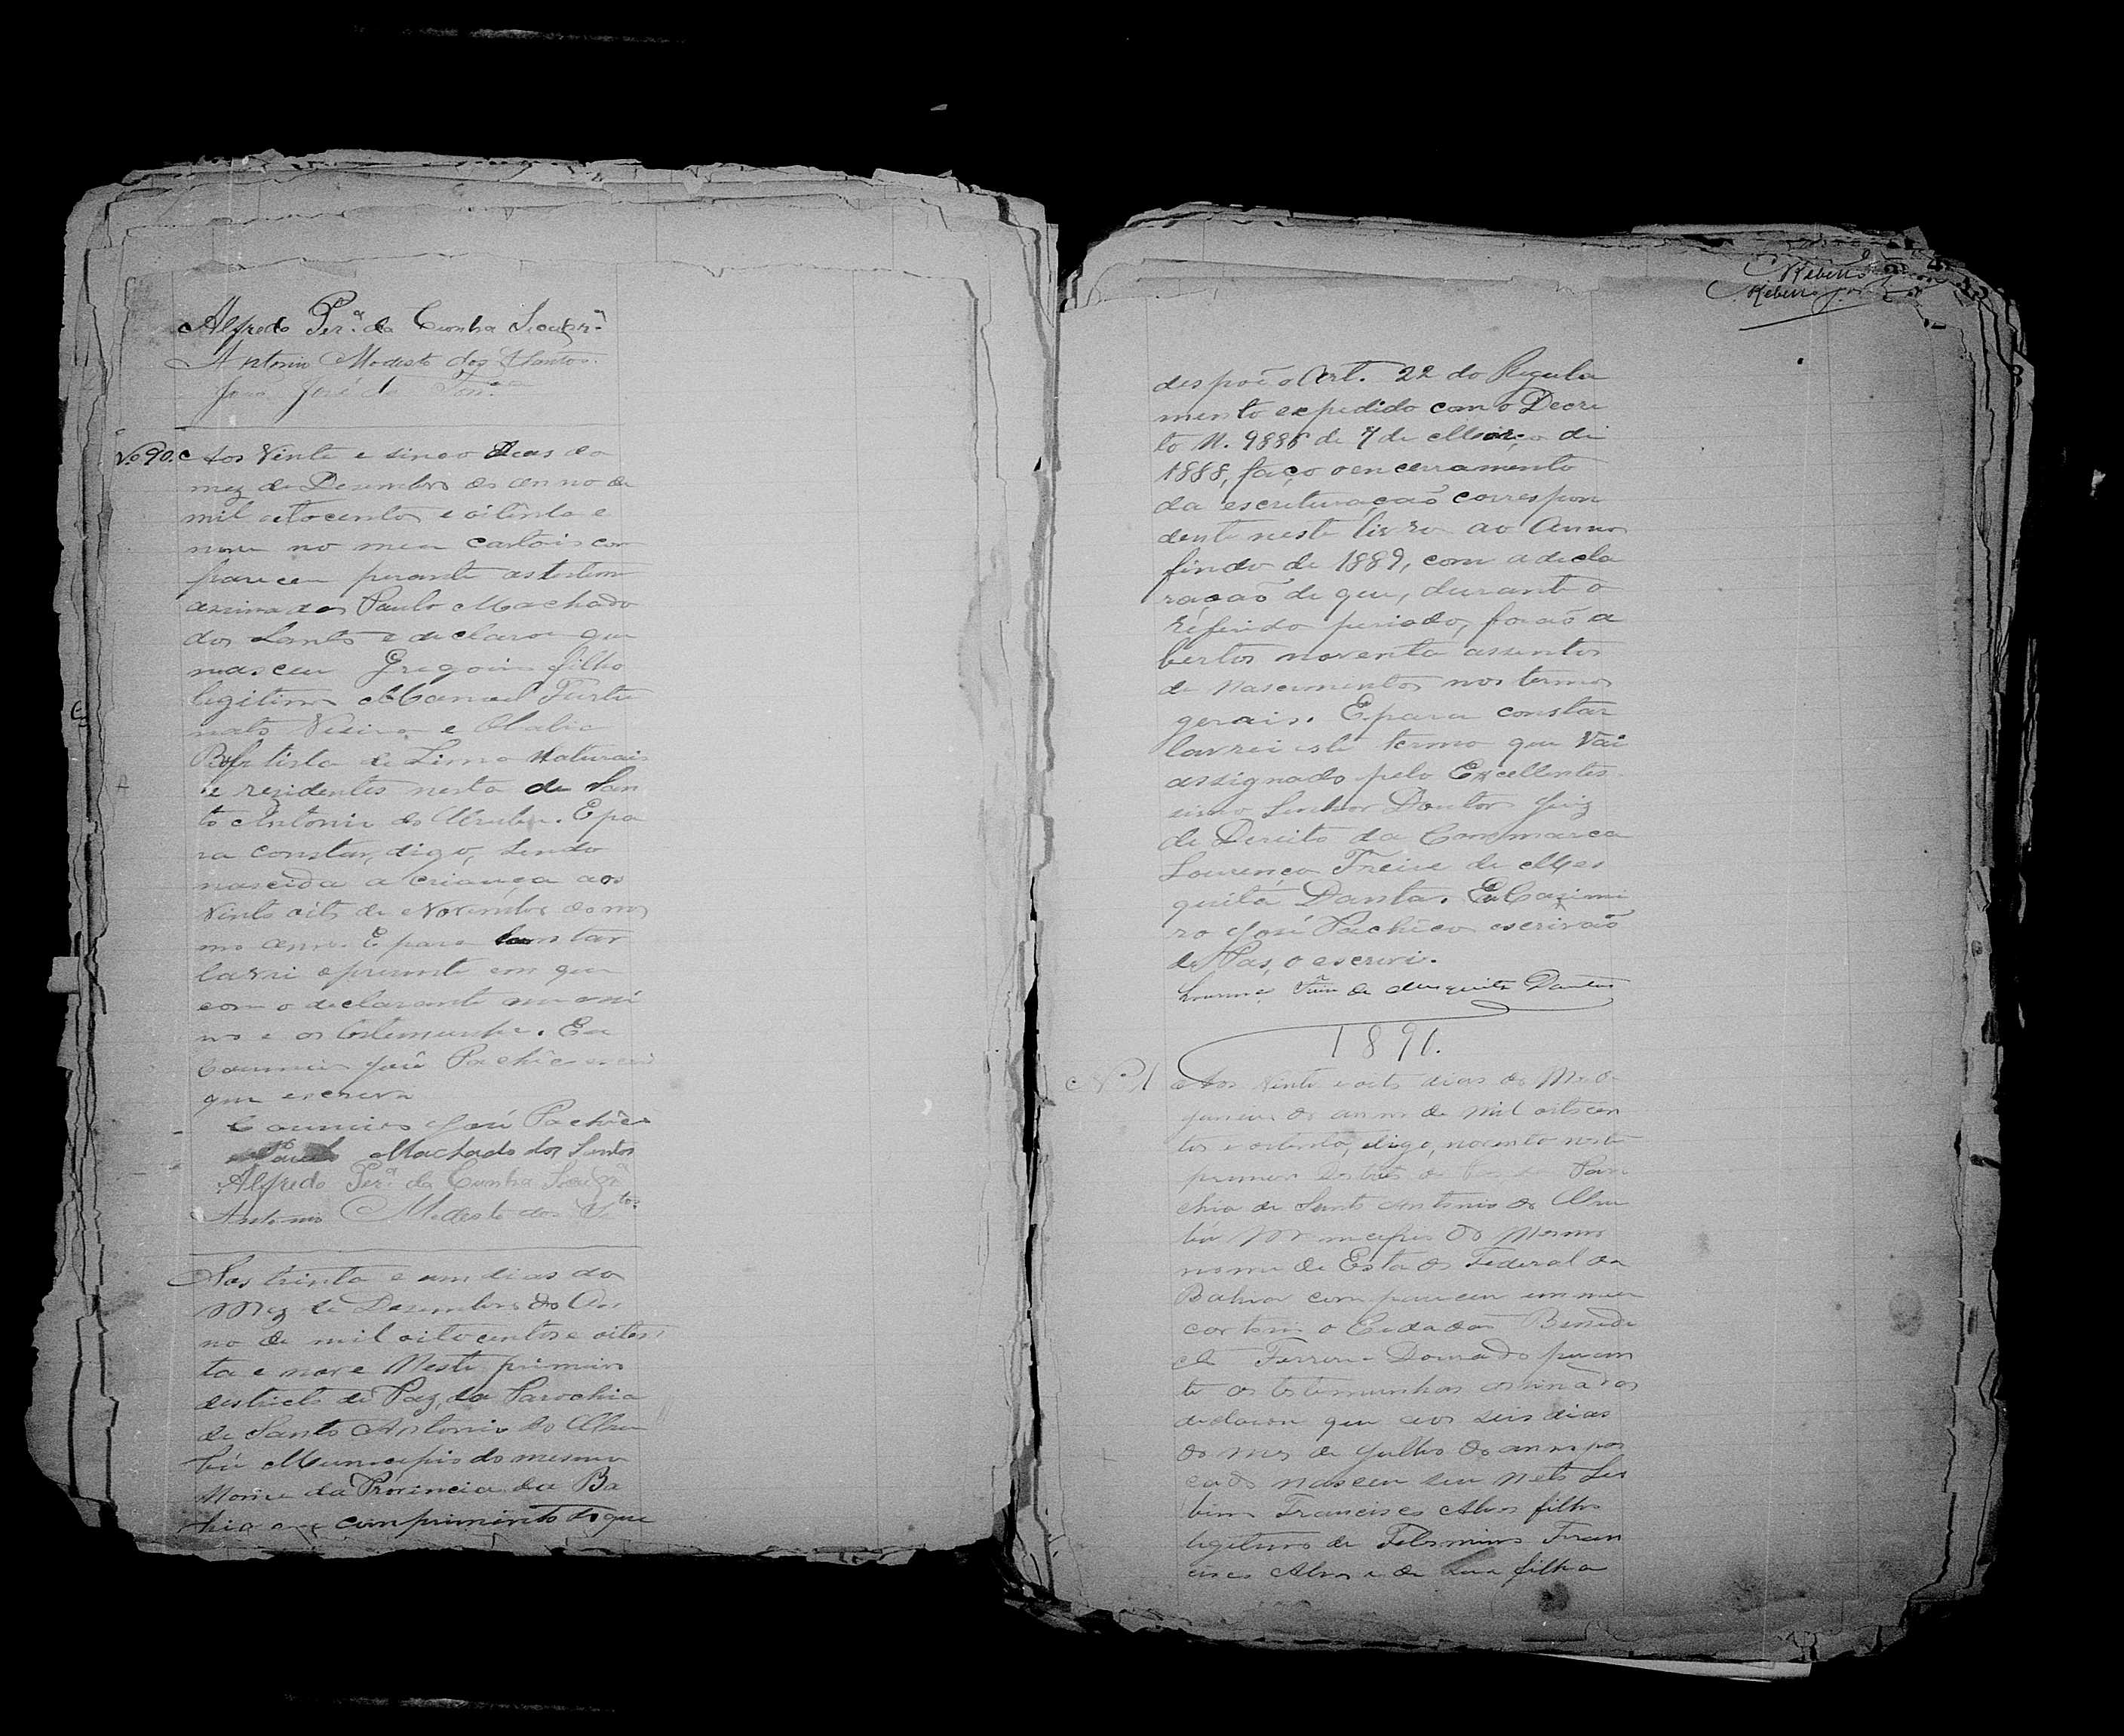 Alfredo Per.ª da Cunha
Antonio Modesto dos Santos
João José da
Nº 90. Aos Vinte e sinco dias do
mez de Desembro do anno de
mil oitocentos e oitenta e
nove no meu cartoio com
pareceu perante as testem
assinadas Paulo Machado
dos Santos e declarou que
nasceu Gregorio filho
legitimo Manoel Fortu
nato Vieira e
Baptista de Lima Naturais
e rezidentes nesta de San
to Antonio do Urubu. E pa
ra constar, digo, sendo
nascida a criança aos
Vinte oito de Novembro do mes
mo anno. E para constar
lavrei o presente em que
com o declarante me assi
no e as testemunha. Eu
José Pachêco
que escreva
José Pachêco
Machado dos Santos
Alfredo Per.ª da Cunha
Antonio Modesto dos S.tos
Aos trinta e um dias do
Mez de Desembro do An
no de mil oitocentos e oiten
ta e nove Neste primeiro
destricto de Paz, da Parochia
de Santo Antonio do Uru
bú Municipio do mesmo
Nome da Provincia da Ba
hia em comprimento do que
Rebello
Rebello
despoê o Art. 22 do Regula
mento expedido com o Decre
to N. 9886 de 7 de Março de
1888, faço o encerramento
da escrituração correspon
dente neste livro ao Anno
findo de 1889, com a decla
ração de que, durante o
referido periodo, forão a
bertos noventa assentos
de Nascimentos nos termos
gerais. E para constar
lavrei este termo que Vai
assignado pelo Excellentis
simo Senhor Doutor Juiz
de Direito da Commarca
Lourenço Freire de Mes
quita Dantas. Eu Casimi
ro José Pachêco escrivão
de Pas, o escrevi.
Lourenço Freire de Mesquita Dantas
1890.
Nº 1 Aos Vinte e oito dias do Mez de
Janeiro do anno de mil oitocen
tos e oitenta, digo, noventa neste
primeiro Destricto de Paz, da Paro
chia de Santo Antonio do Uru
bú Municipio do Mesmo
nome do Estado Federal da
Bahia compareceu em meu
cartorio o Cidadão Benedi
cto Ferreira Dourado peran
te as testemunhas assinadas
declarou que aos seis dias
do mes de Julho do anno pas
cado nasceu seu neto
Francisco Alves filho
legitimo de Fran
cisco Alves e de sua filha